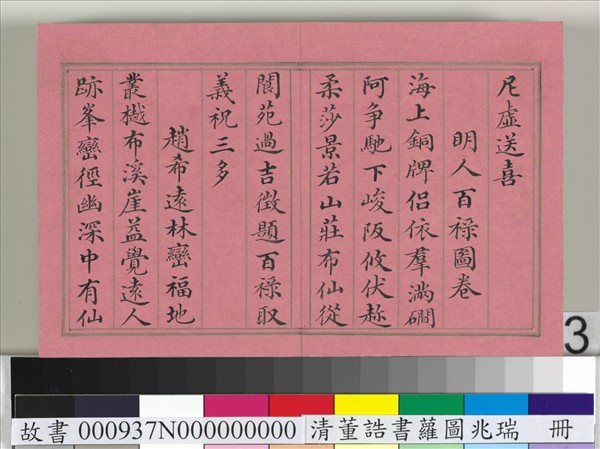 尼虛送喜
明人百祿圖卷
海上銅牌侶依羣滿磵
阿爭馳下峻阪攸伏趂
柔莎景若山莊布仙從
閬苑過吉徴題百祿取
義祝三多
趙希遠林巒福地
叢樾布溪崖益覺遠人
跡峯巒徑幽深中有仙
3
故書 000937N000000000 清董誥書蘿圖兆瑞 冊